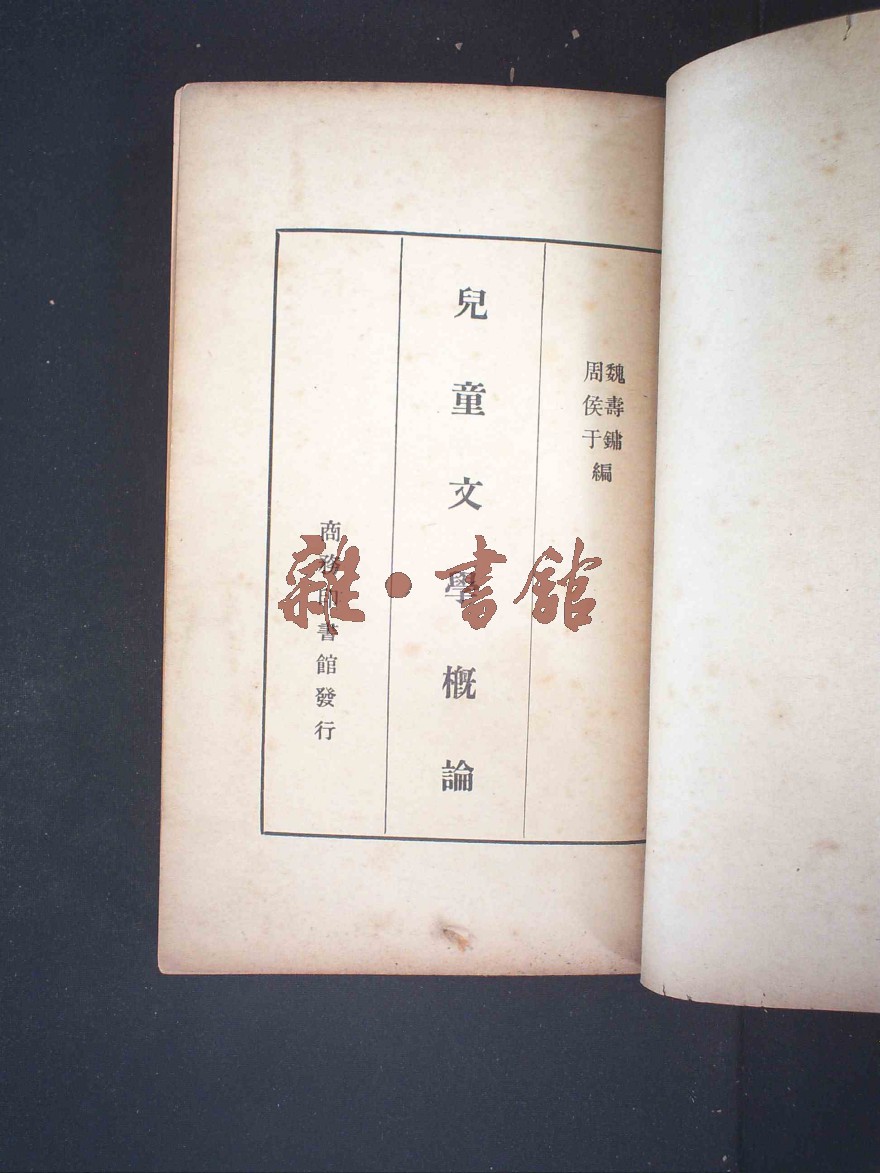 魏壽鏞
周侯于
編
兒童文學概論
商務印書館發行
雜•書館